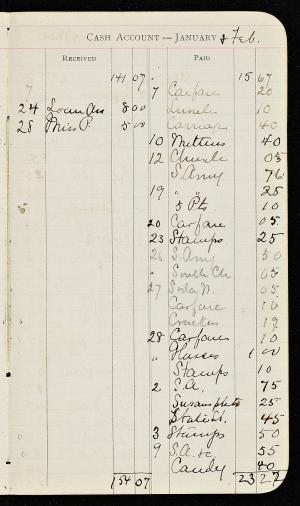 CASH ACCOUNT — JANUARY & Feb.
RECEIVED PAID
141 07 15 67
7 7 Carfare 20
24 8 00 Lunch 10
28 Miss P. 5 00 Carriage 40
10 Mittens 40
12 Church 05
S. Army 76
19 " " 25
5 Pts 10
20 Carfare 05
23 Stamps 25
26 S. Army 50
" South Ch 05
27 50
Carfare 10
Crackers 19
28 Carfare 10
" Glasses 1 00
Stamps 10
2 S.A. 75
25
45
3 Stamps 50
9 S.A. &c 55
Candy 40
154 07 23 22